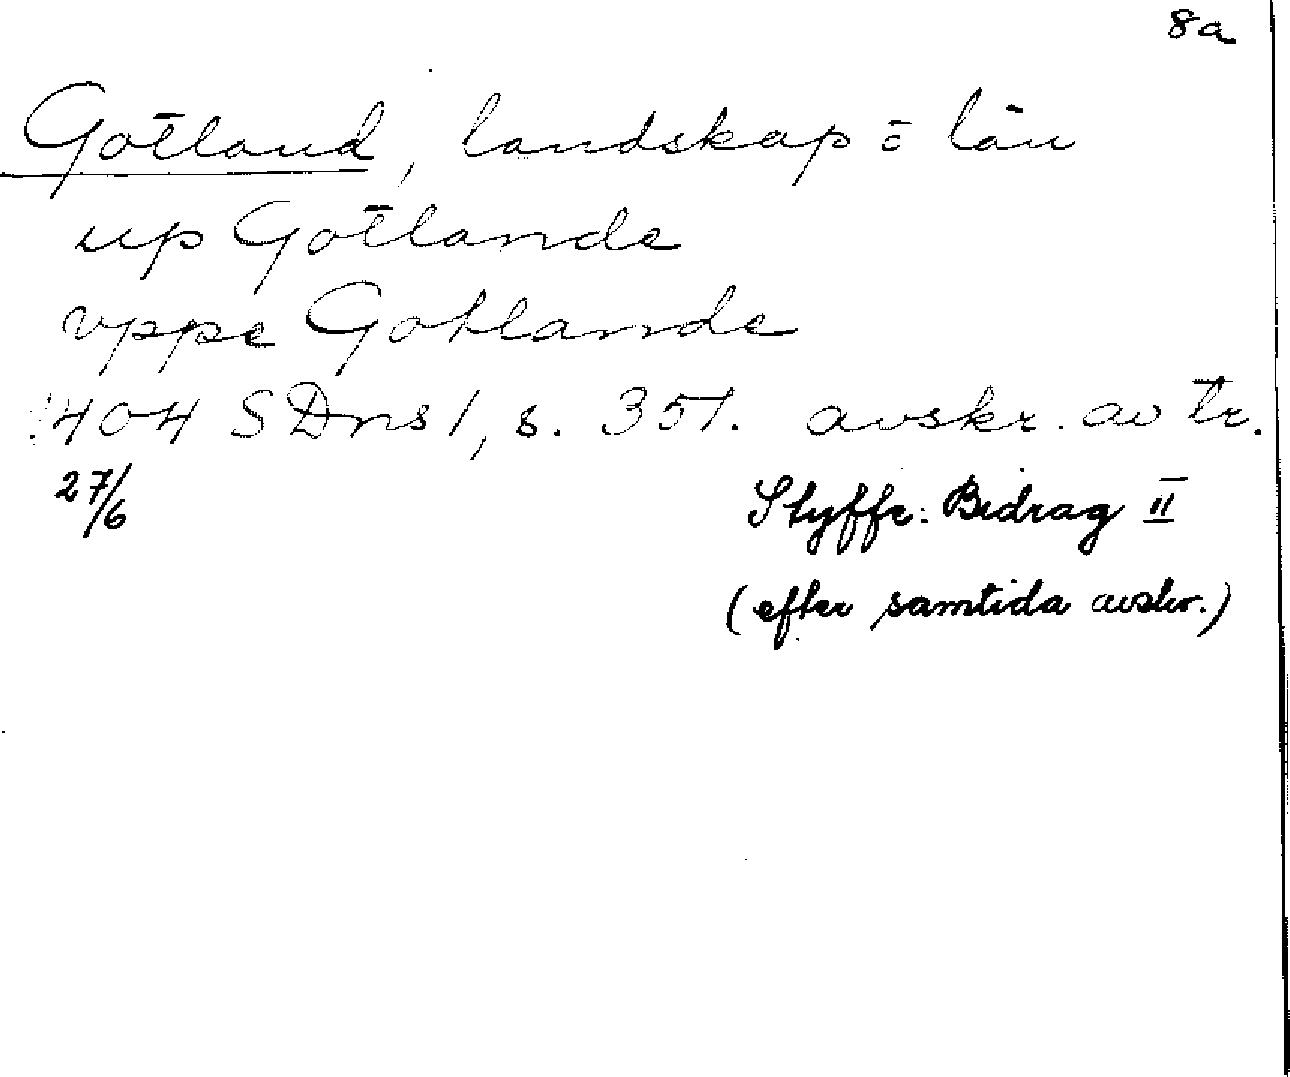 8a
Gotland, landskap o län
up Gotlande
vppe Gotlande
1404 SDns 1, s. 351. avskr. av tr.
27/6 Styffe: Bidrag II
(efter samtida avskr.)